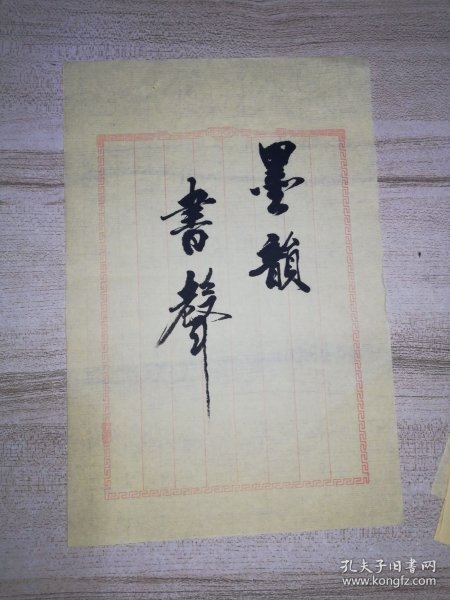 墨韻
書聲
孔夫子旧书网
www.kongfz.com